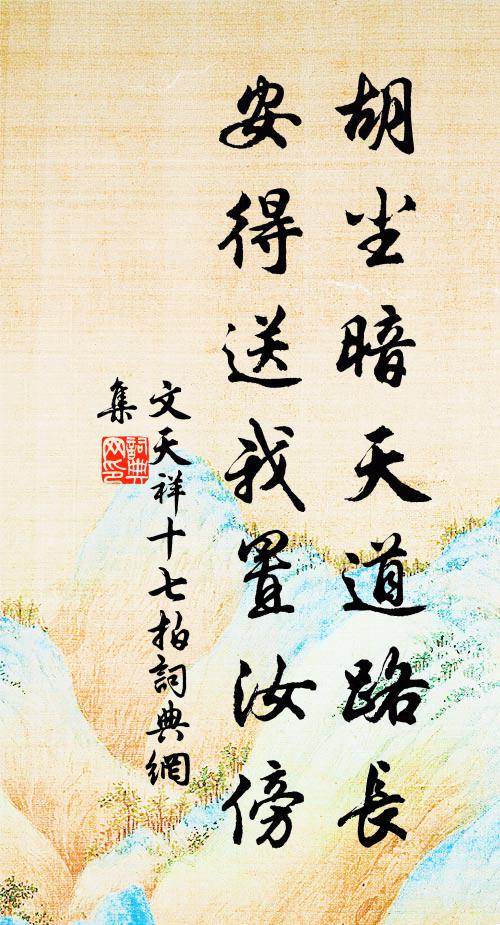 胡尘暗天道路長
安得送我置汝傍
文天祥十七拍詞典網
集
詞典
网印